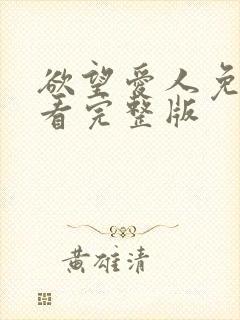 欲望爱人免
看完整版
黄雄清